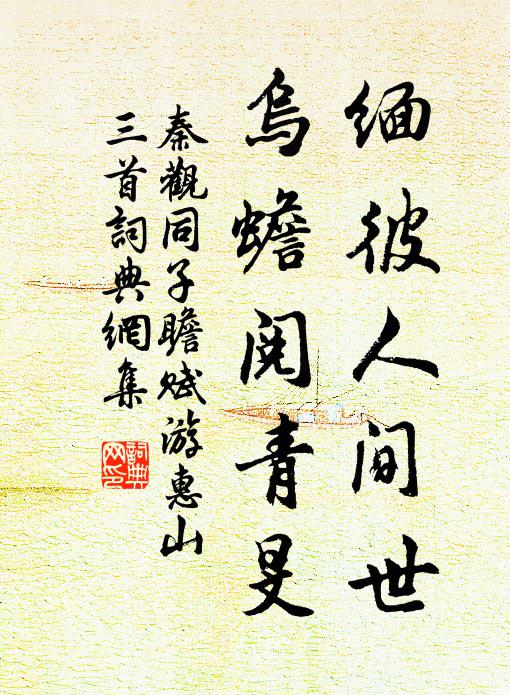 缅彼人间世
烏蟾閱青旻
秦觀同子瞻赋游惠山
三首詞典網集
詞典
网印